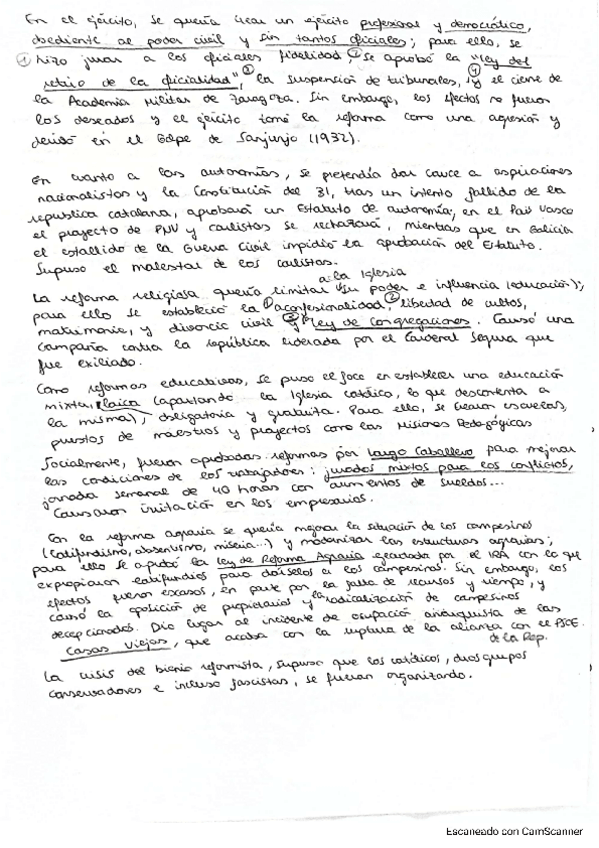 En el ejército, se quería crear un ejército profesional y democrático,
obediente al poder civil y sin tantos oficiales; para ello, se
① hizo jurar a los oficiales fidelidad, ② se aprobó la "ley del
retiro de la oficialidad", ③ la suspensión de tribunales, ④ y el cierre de
la Academia Militar de Zaragoza. Sin embargo, los efectos no fueron
los deseados y el ejército tomó la reforma como una agresión y
derivó en el Golpe de Sanjurjo (1932).
En cuanto a las autonomías, se pretendía dar cauce a aspiraciones
nacionalistas y la Constitución del 31, tras un intento fallido de la
republica catalana, aprobará un Estatuto de autonomía, en el País Vasco
el proyecto de PNV y carlistas se rechazará, mientras que en Galicia
el estallido de la Guerra Civil impidió la aprobación del Estatuto.
Supuso el malestar de los carlistas.
a la Iglesia
La reforma religiosa quería limitar su poder e influencia (educación);
para ello se estableció la ① aconfesionalidad, ② libertad de cultos,
matrimonio, y divorcio civil ③ y ley de congregaciones. Causó una
campaña contra la república liderada por el Cardenal Segura que
fue exiliado.
Como reformas educativas, se puso el foco en establecer una educación
mixta, laica (apartando la Iglesia católica, lo que descontenta a
la misma), obligatoria y gratuita. Para ello, se crearon escuelas,
puestos de maestros y proyectos como las Misiones Pedagógicas
Socialmente, fueron aprobadas reformas por Largo Caballero para mejorar
las condiciones de los trabajadores: jurados mixtos para los conflictos,
jornada semanal de 40 horas con aumentos de sueldos...
Causaron irritación en los empresarios.
Con la reforma agraria se quería mejorar la situación de los campesinos
(latifundismo, absentismo, miseria...) y modernizar las estructuras agrarias;
para ello se aprobó la Ley de Reforma Agraria ejecutada por el IRA con lo que
expropiaron latifundios para dárselos a los campesinos. Sin embargo, los
efectos fueron escasos, en parte por la falta de recursos y tiempo, y
causó la oposición de propietarios y la radicalización de campesinos
decepcionados. Dio lugar al incidente de ocupación anarquista de las
Casas Viejas, que acaba con la ruptura de la alianza con el PSOE.
de la Rep.
La crisis del bienio reformista, supuso que los católicos, grupos
conservadores e incluso fascistas, se fueran organizando.
Escaneado con CamScanner